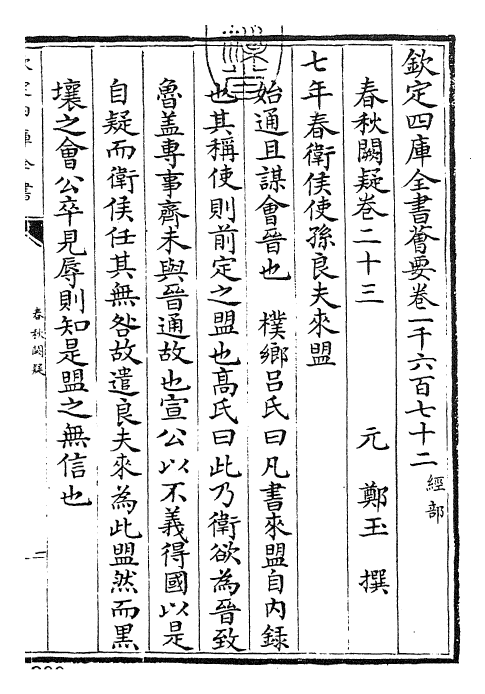 欽定四庫全書薈要卷一千六百七十二 經部
春秋闕疑卷二十三 元 鄭玉 撰
七年春衛侯使孫良夫來盟
始通且謀會晉也 樸鄉呂氏曰凡書來盟自内錄
也其稱使則前定之盟也髙氏曰此乃衛欲為晉致
魯盖專事齊未與晉通故也宣公以不義得國以是
自疑而衛侯任其無咎故遣良夫來為此盟然而黒
壤之會公卒見辱則知是盟之無信也
欽定四庫全書
春秋闕疑